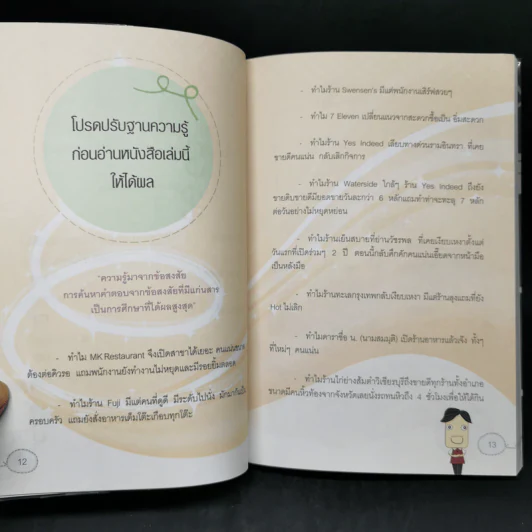 โปรดปรับฐานความรู้
ก่อนอ่านหนังสือเล่มนี้
ให้ได้ผล
"ความรู้มาจากข้อสงสัย
การค้นหาคำตอบจากข้อสงสัยที่มีแก่นสาร
เป็นการศึกษาที่ได้ผลสูงสุด"
- ทำไม MK Restaurant จึงเปิดสาขาได้เยอะ คนแน่นขนาด
ต้องต่อคิวรอ แถมพนักงานยังทำงานไม่หยุดและมีรอยยิ้มตลอด
- ทำไมร้าน Fuji มีแต่คนที่ดูดี มีระดับไปนั่ง มักมากันเป็น
ครอบครัว แถมยังสั่งอาหารเต็มโต๊ะเกือบทุกโต๊ะ
12
- ทำไมร้าน Swensen's มีแต่พนักงานเสิร์ฟสวยๆ
- ทำไม 7 Eleven เปลี่ยนแนวจากสะดวกซื้อเป็น อิ่มสะดวก
- ทำไมร้าน Yes Indeed เลียบทางด่วนรามอินทรา ที่เคย
ขายดีคนแน่น กลับเลิกกิจการ
- ทำไมร้าน Waterside ใกล้ๆ ร้าน Yes Indeed ถึงยัง
ขายดิบขายดีมียอดขายวันละกว่า 6 หลักแถมทำท่าจะทะลุ 7 หลัก
ต่อวันอย่างไม่หยุดหย่อน
- ทำไมร้านเย็นสบายที่ย่านวัชรพล ที่เคยเงียบเหงาตั้งแต่
วันแรกที่เปิดร่วมๆ 2 ปี ตอนนี้กลับคึกคักคนแน่นเอี๊ยดจากหน้ามือ
เป็นหลังมือ
- ทำไมร้านทะเลกรุงเทพกลับเงียบเหงา มีแต่ร้านลุงแถมที่ยัง
Hot ไม่เลิก
- ทำไมดาราชื่อ น. (นามสมมุติ) เปิดร้านอาหารแล้วเจ๊ง ทั้งๆ
ที่ใหม่ๆ คนแน่น
- ทำไมร้านไก่ย่างส้มตำวิเชียรบุรีถึงขายดีทุกร้านทั้งอำเภอ
ขนาดมีคนหิ้วท้องจากจังหวัดเลยนั่งรถทนหิวถึง 4 ชั่วโมงเพื่อให้ได้กิน
13